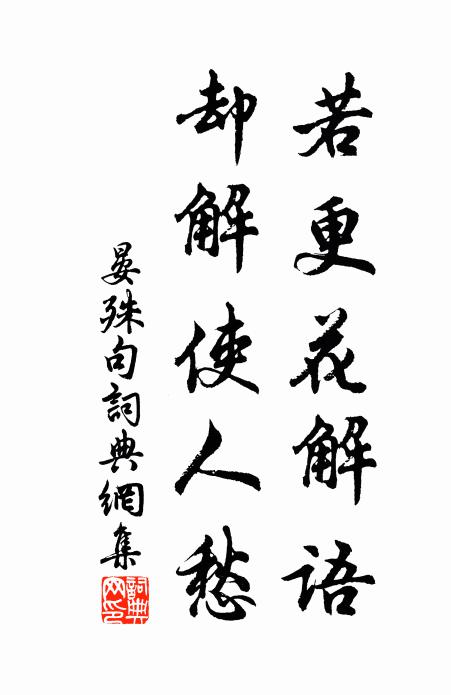 若更花解語
却解使人愁
晏殊句詞典網集
詞典网印